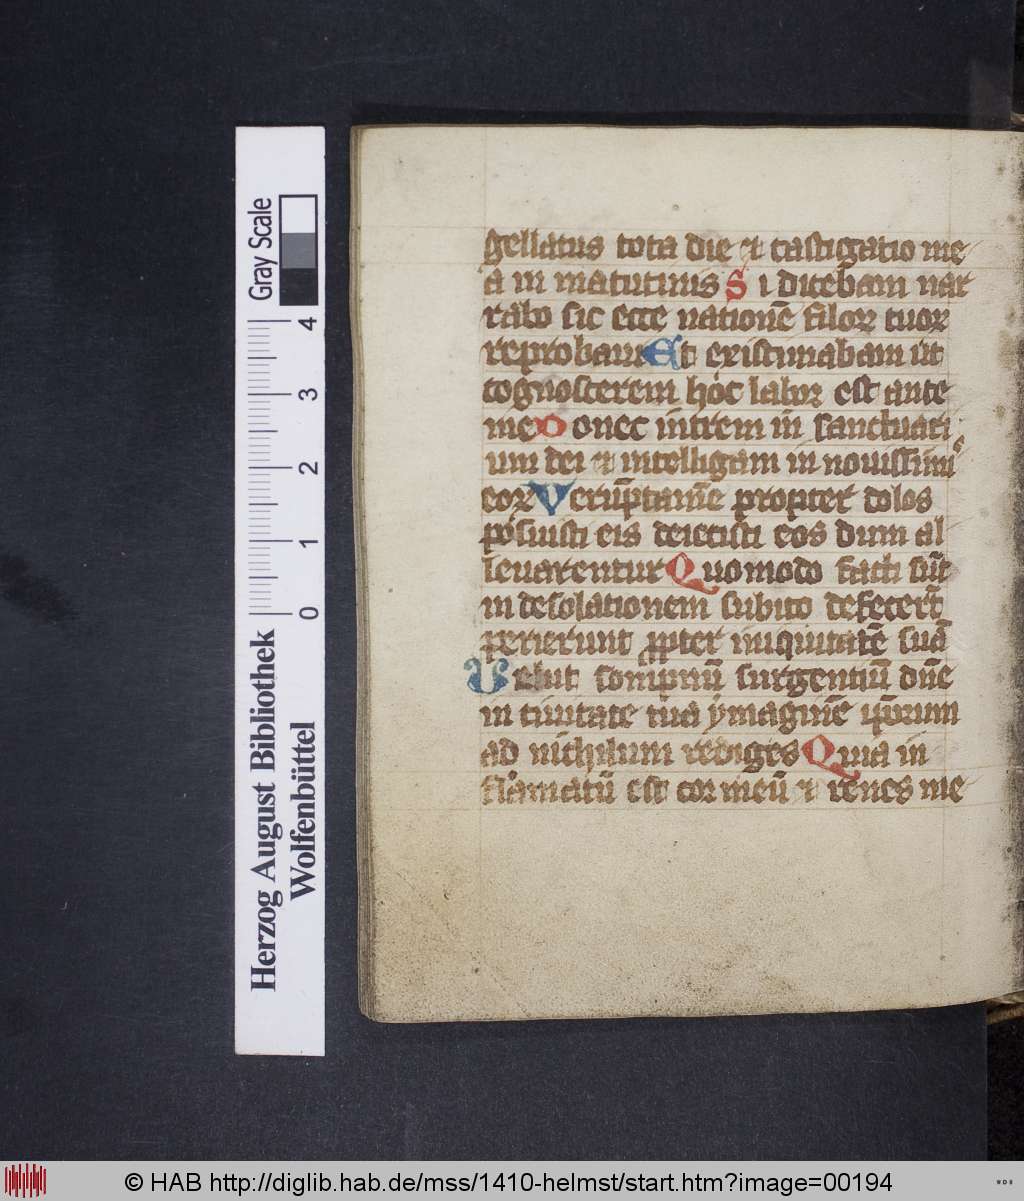 gellatus tota die et castigatio me
a in matutinis Si dicebam nar
rabo sic ecce nationē filoꝝ tuoꝝ
reprobaui Et existimabam ut
cognoscerem hoc laboꝝ est ante
me Donec intrem in sanctuari
um dei et intelligam in nouissimi
eoꝝ Verūptamē propter dolos
posuisti eis deiecisti eos dum al
leuarentur Quomodo facti sūt
in desolationem subito defecerūt
perierunt ꝓpter iniquitatē suā
Velut sompniū surgentiū dn̄e
in ciuitate tua ymaginē ip̄orum
ad nichilum rediges Quia in
flāmatū est cor meū et renes me
Gray Scale
0 1 2 3 4
Herzog August Bibliothek
Wolfenbüttel
© HAB http://diglib.hab.de/mss/1410-helmst/start.htm?image=00194